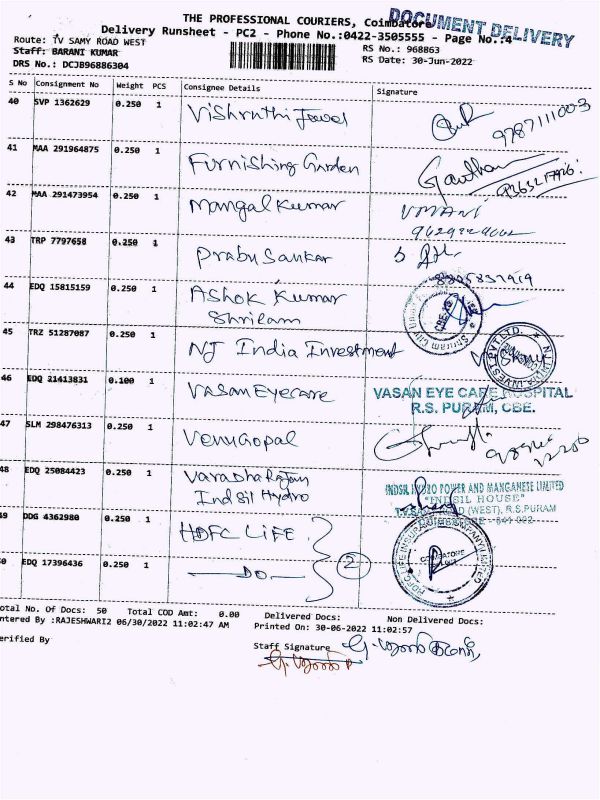 THE PROFESSIONAL COURIERS, Coimbatore
DOCUMENT DELIVERY
Delivery Runsheet - PC2 - Phone No.:0422-3505555 - Page No.:4
Route: TV SAMY ROAD WEST
RS No.: 968863
Staff: BARANI KUMAR
RS Date: 30-Jun-2022
DRS No.: DCJB96886304
S No Consignment No Weight PCS Consignee Details Signature
40 SVP 1362629 0.250 1 Vishruthi Jewel
9787111003
41 MAA 291964875 0.250 1 Furnishing Garden
Gautham
42 MAA 291473954 0.250 1 Mangal Kumar
VMANI
43 TRP 7797658 0.250 1 Prabu Sankar
44 EDQ 15815159 0.250 1 Ashok Kumar
Shriram
45 TRZ 51287087 0.250 1 NJ India Investment
46 EDQ 21413831 0.100 1 Vasan Eyecare
VASAN EYE CARE HOSPITAL
R.S. PURAM, CBE.
47 SLM 298476313 0.250 1 Venugopal
48 EDQ 25084423 0.250 1 Varadharajan
Indsil Hydro
INDSIL HYDRO POWER AND MANGANESE LIMITED
"INDSIL HOUSE"
ROAD (WEST), R.S.PURAM
COIMBATORE - 641 002
49 DDG 4362980 0.250 1 HDFC LIFE
50 EDQ 17396436 1 DO
0.250
2
Total No. Of Docs: 50 Total COD Amt: 0.00 Delivered Docs: Non Delivered Docs:
Entered By :RAJESHWARI2 06/30/2022 11:02:47 AM Printed On: 30-06-2022 11:02:57
Verified By Staff Signature